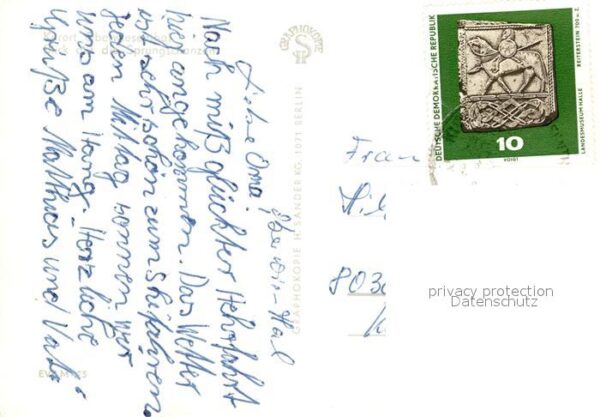 Kurort
Liebe Oma!
Nach mißglückter Hehrfahrt
hie angekommen. Das Wetter
ist sehr schön zum Skifahren.
Jeden Mittag sonnen wir
uns am Hang. Herzliche
Grüße Matthias und Vati
GRAPHOKOPIE
GRAPHOKOPIE H. SANDER KG, 1071 BERLIN
DEUTSCHE DEMOKRATISCHE REPUBLIK
REITERSTEIN 700 u. Z.
LANDESMUSEUM HALLE
10
VOIGT
Frau
Hil
8030
privacy protection
Datenschutz